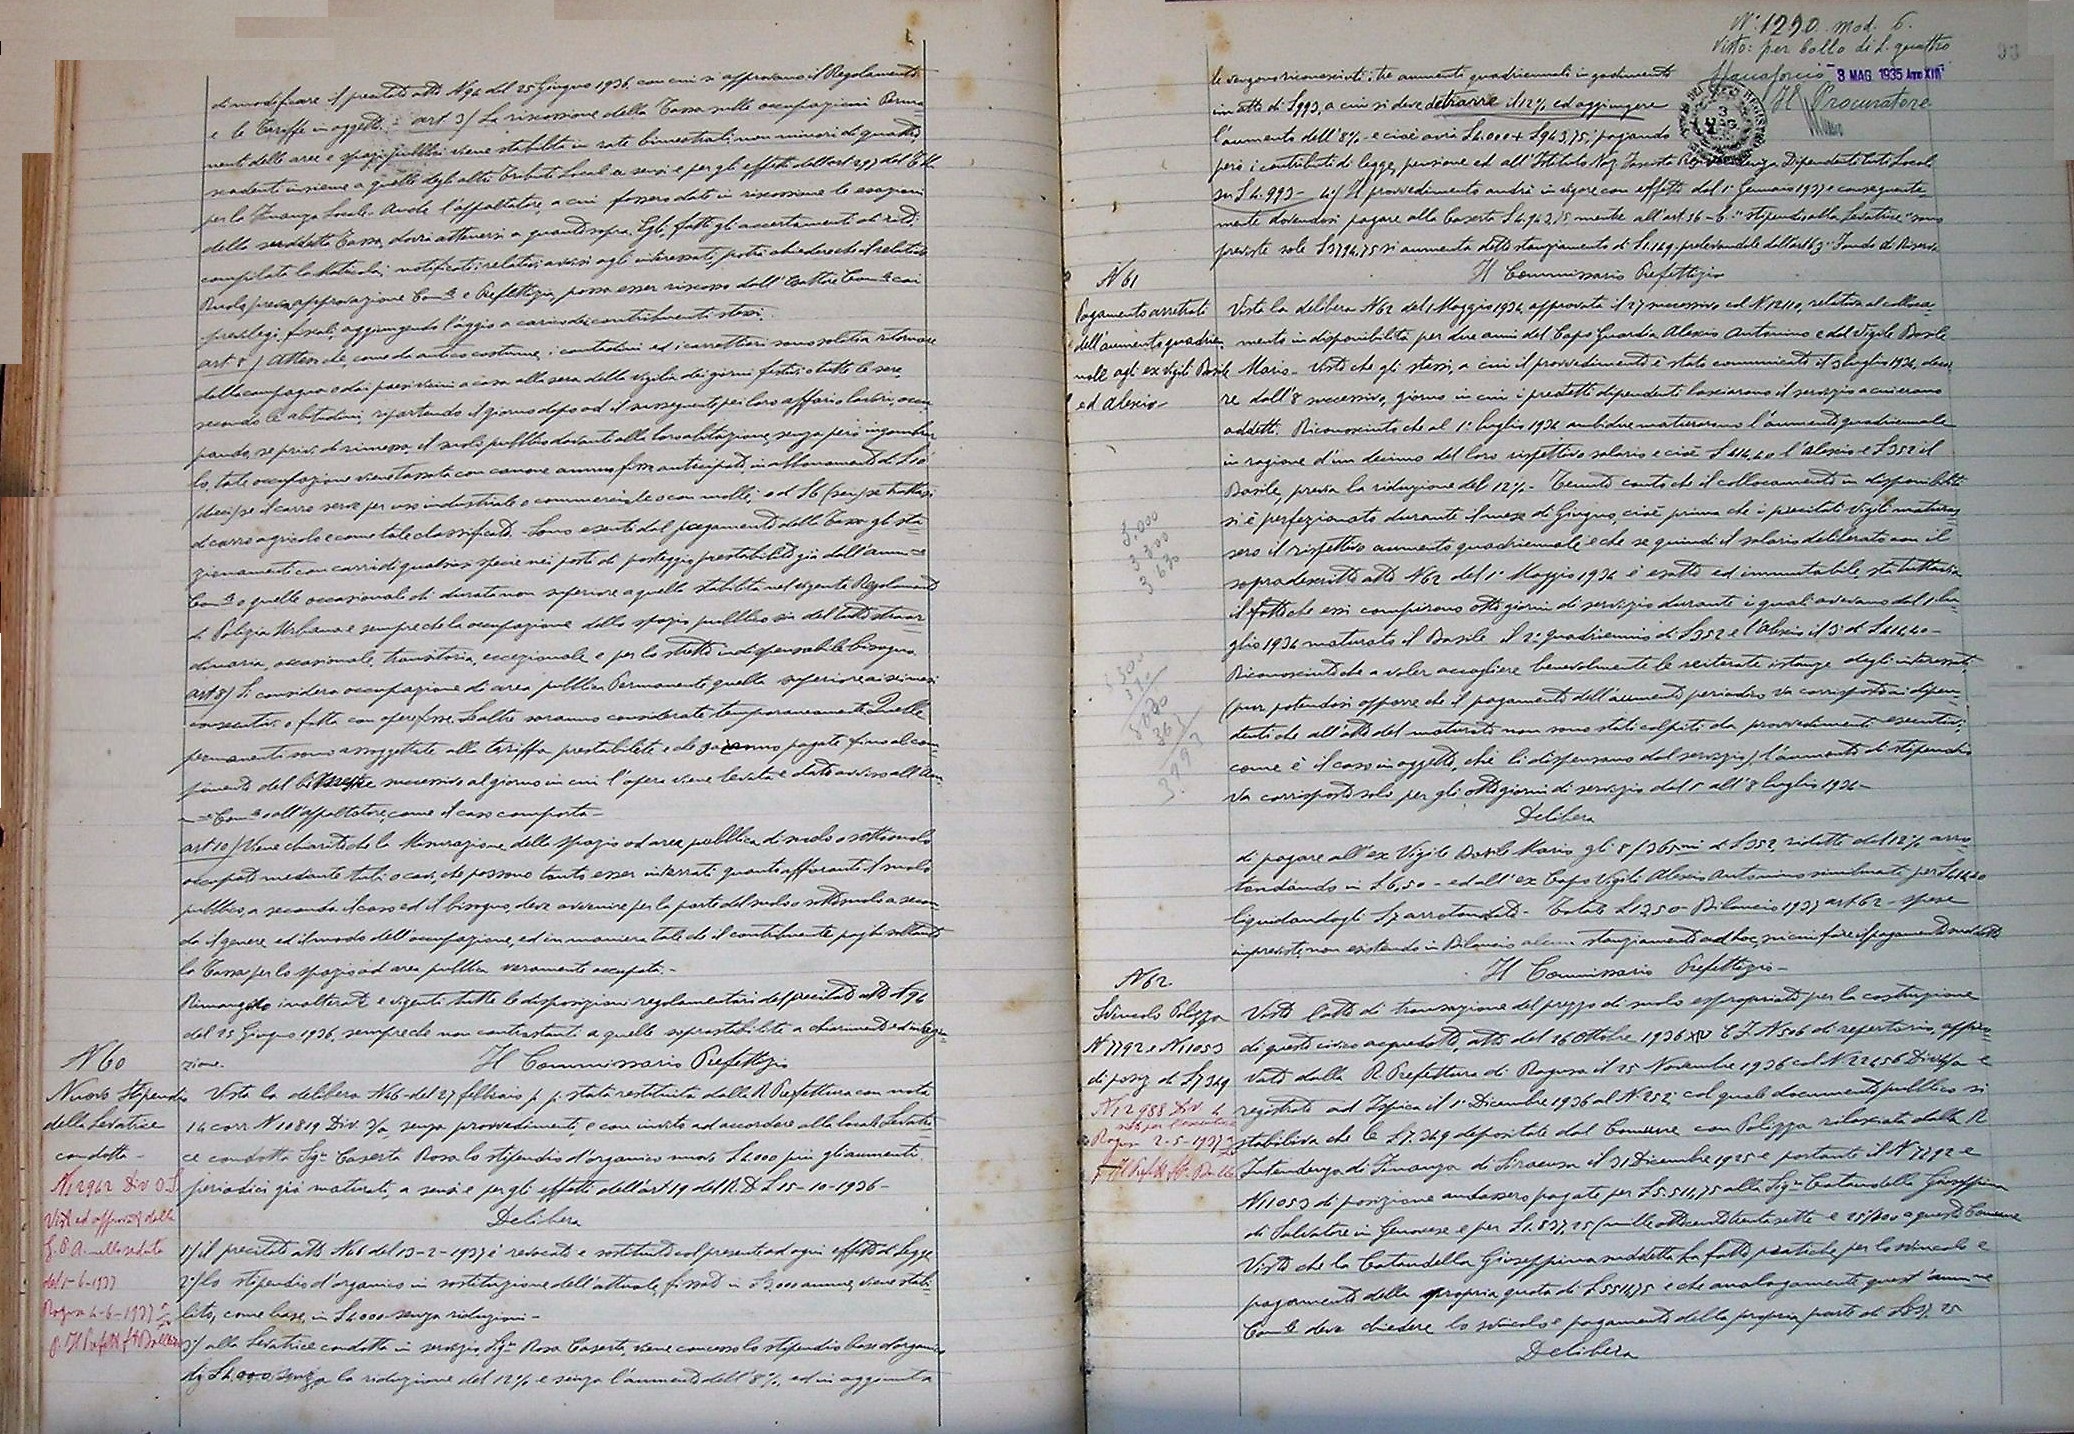 di modificare il precitato atto N 96 del 25 Giugno 1936, con cui si approvano il Regolamento
e le Tariffe in oggetto: - art 3/ La riscossione della Tassa sulle occupazioni Perma=
nenti delle aree e spazi pubblici viene stabilita in rate bimestrali, non minori di quattro,
scadenti insieme a quelle degli altri tributi Locali ai sensi e per gli effetti dell'art 277 del T.U.
per la Finanza Locale. Anche l'appaltatore, a cui fossero date in riscossione le esazioni
della suddetta Tassa, dovrà attenersi a quanto sopra. Egli, fatti gli accertamenti di rito,
compilata la Matricola, notificati i relativi avvisi agli interessati, potrà chiedere che il relativo
Ruolo, previa approvazione Com.le e Prefettizia, possa esser riscosso dall'Esattore Com.le coi
privilegi fiscali, aggiungendo l'aggio a carico dei contribuenti stessi.
art 5/ Atteso che, come da antico costume, i contadini ed i carrettieri sono soliti a ritornare
dalla campagna o dai paesi vicini a casa alla sera della vigilia dei giorni festivi o tutte le sere,
secondo le abitudini, ripartendo il giorno dopo od il susseguente, pei loro affari o lavori, occu=
pando, se privi di rimessa, il suolo pubblico davanti alla loro abitazione, senza però ingombrar
lo, tale occupazione viene tassata con canone annuo fisso anticipato, in abbonamento di £ 10
(dieci) se il carro serve per uso industriale o commerciale o con molle; e di £ 6 (sei) se trattasi
di carro agricolo e come tale classificato. - Sono esenti dal pagamento della Tassa gli sta
zionamenti con carri di qualsiasi specie nei posti di posteggio prestabiliti già dall'amm.ne
Com.le o quelle occasionali di durata non superiore a quella stabilita nel vigente Regolamento
di Polizia Urbana e sempre che la occupazione dello spazio pubblico sia del tutto straor
dinaria, occasionale, transitoria, eccezionale e per lo stretto indispensabile bisogno.
art 8/ Si considera occupazione di area pubblica Permanente quella superiore ai sei mesi
consecutivi o fatta con opere fisse. Le altre saranno considerate temporaneamente. Quelle
permanenti sono assoggettate alla tariffa prestabilita e che saranno pagate fino al com=
pimento del bimestre successivo al giorno in cui l'opera viene levata e dato avviso all'Am
=ne Com.le o all'appaltatore, come il caso comporta -
art 10/ Viene chiarito che la Misurazione dello spazio od area pubblica di suolo o sottosuolo
occupati mediante tubi o cavi, che possono tanto esser interrati quanto affioranti il suolo
pubblico, a seconda il caso ed il bisogno, deve avvenire per la parte del suolo o sottosuolo a secon
da il genere ed il modo dell'occupazione, ed in maniera tale che il contribuente paghi soltanto
la Tassa per lo spazio od area pubblica veramente occupata. -
Rimangono inalterate e vigenti tutte le disposizioni regolamentari del precitato atto N 96
del 25 Giugno 1936, sempre che non contrastanti a quelle soprastabilite a chiarimento ed integra
zione.
N 60
Il Commissario Prefettizio
Nuovo Stipendio
della Levatrice
condotta -
Vista la delibera N 46 del 27 febbraio p.p. stata restituita dalla R. Prefettura con nota
14 corr N 10819 Div. 3/a, senza provvedimenti, e con invito ad accordare alla locale Levatri=
ce condotta Sig.ra Caserta Rosa lo stipendio d'organico nuovo £ 4.000 più gli aumenti
periodici già maturati, a sensi e per gli effetti dell'art 19 del R.D.L 15-10-1936 -
N 12962 Div
Vist ed approvat dalla
G.P.A. nella seduta
del 1-6-1937
Ragusa 4-6-1937
p. Il Prefetto
Delibera
1°/ il precitato atto N 46 del 13-2-1937 è revocato e sostituito col presente ad ogni effetto di legge
2°/ lo stipendio d'organico in sostituzione dell'attuale, fissato in £ 3.000 annue, viene stabi
lito, come base, in £ 4.000 senza riduzioni -
3°/ alla Levatrice condotta in servizio Sig.ra Rosa Caserta, viene concesso lo stipendio base d'organico
di £ 4.000 senza la riduzione del 12% e senza l'aumento dell'8%, ed in aggiunta
N° 1290. mod. 6.
Visto: per bollo di L. quattro
3 MAG 1935 Anno XIII
Il Procuratore
le vengono riconosciuti i tre aumenti quadriennali in godimento
in atto di £ 993, a cui si deve detrarre il 12% ed aggiungere
l'aumento dell'8% e cioè avrà £ 4.000 + £ 943,75; pagando
però i contributi di legge, pensione ed all'Istituto Naz. Fascista Dipendenti Enti Locali
su £ 4.993 - 4°/ Il provvedimento andrà in vigore con effetto dal 1° Gennaio 1937 e conseguente
mente dovendosi pagare alla Caserta £ 4.943,75, mentre all'art. 56-b "stipendio alla Levatrice" sono
previste sole £ 3794,75 si aumenta detto stanziamento di £ 1.149 prelevandole dall'art 63 "Fondo di Riserva
Il Commissario Prefettizio
N 61
Pagamento arretrati
dell'aumento quadrien
nale agli ex vigili Basile
ed Alessio -
Vista la delibera N 62 del 1 Maggio 1934, approvata il 27 successivo col N 12110, relativa al colloca=
mento in disponibilità per due anni del Capo Guardia Alessio Antonino e del Vigile Basile
Mario - Visto che gli stessi, a cui il provvedimento è stato comunicato il 3 luglio 1934, a decor
re dall'8 successivo, giorno in cui i predetti dipendenti lasciarono il servizio a cui erano
addetti. Riconosciuto che al 1° luglio 1934 ambidue maturarono l'aumento quadriennale
in ragione d'un decimo del loro rispettivo salario e cioè £ 414,40 l'Alessio e £ 352 il
Basile, previa la riduzione del 12% - Tenuto conto che il collocamento in disponibilità
si è perfezionato durante il mese di Giugno, cioè prima che i precitati vigili maturas
sero il rispettivo aumento quadriennale e che se quindi il salario deliberato con il
sopradescritto atto N 62 del 1° Maggio 1934 è esatto ed immutabile, sta tuttavia
il fatto che essi compirono otto giorni di servizio durante i quali avevano dal 1 lu=
glio 1934 maturato il Basile il 2° quadriennio di £ 352 e l'Alessio il 3° di £ 414,40 -
Riconosciuto che a voler accogliere benevolmente le reiterate istanze degli interessati
(pur potendosi opporre che il pagamento dell'aumento periodico va corrisposto ai dipen=
denti che all'atto del maturato non sono stati colpiti da provvedimenti esecutivi,
come è il caso in oggetto, che li dispensano dal servizio) l'aumento di stipendio
va corrisposto solo per gli otto giorni di servizio dal 1° all'8 luglio 1934 -
3.000
3 300
3 630
3 300
330
3630
363
3.993
Delibera
di pagare all'ex Vigile Basile Mario gli 8/365mi di £ 352, ridotte del 12% arro=
tondando in £ 6,50 - ed all'ex Capo Vigili Alessio Antonino similmente per £ 414,40
liquidandogli £ 7 arrotondate - Totale £ 13,50 - Bilancio 1937 art 62 - spese
impreviste, non esistendo in Bilancio alcun stanziamento ad hoc, su cui fare il pagamento suddetto
Il Commissario Prefettizio -
N 62
Svincolo Polizza
N 7792 e N 11053
di posiz di £ 7349
N 12988 Div 4
Ragusa 2-5-1937
Visto l'atto di transazione del prezzo di suolo espropriato per la costruzione
di questo civico acquedotto, atto del 26 Ottobre 1936 XIV E.F. N 506 di repertorio, appro=
vato dalla R. Prefettura di Ragusa il 25 Novembre 1936 col N. 22456 Div e
registrato ad Ispica il 1° Dicembre 1936 al N 252; col quale documento pubblico si
stabiliva che le £ 7.349 depositate dal Comune con Polizza rilasciata dalla R
Intendenza di Finanza di Siracusa il 31 Dicembre 1925 e portante il N 7792 e
N 11053 di posizione andassero pagate per £ 5.511,75 alla Sig.ra Catandella Giuseppina
di Salvatore in Genovese e per £ 1.837,25 (mille ottocentotrentasette e 25/100 a questo Comune
Visto che la Catandella Giuseppina suddetta ha fatto pratiche per lo svincolo e
pagamento della propria quota di £ 5511,75 e che analogamente quest'amm.ne
Com.le deve chiedere lo svincolo e pagamento della propria parte di £ 1837,25
Delibera